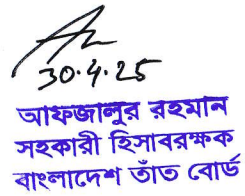 30.4.25
আফজালুর রহমান
সহকারী হিসাবরক্ষক
বাংলাদেশ তাঁত বোর্ড